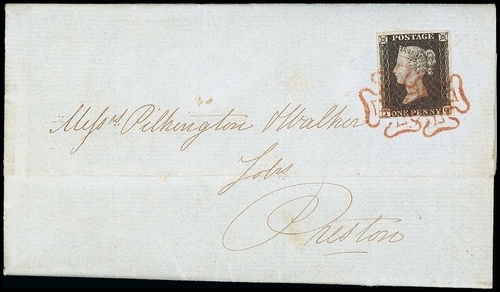 POSTAGE
ONE PENNY
Messrs. Pilkington & Walker
Preston